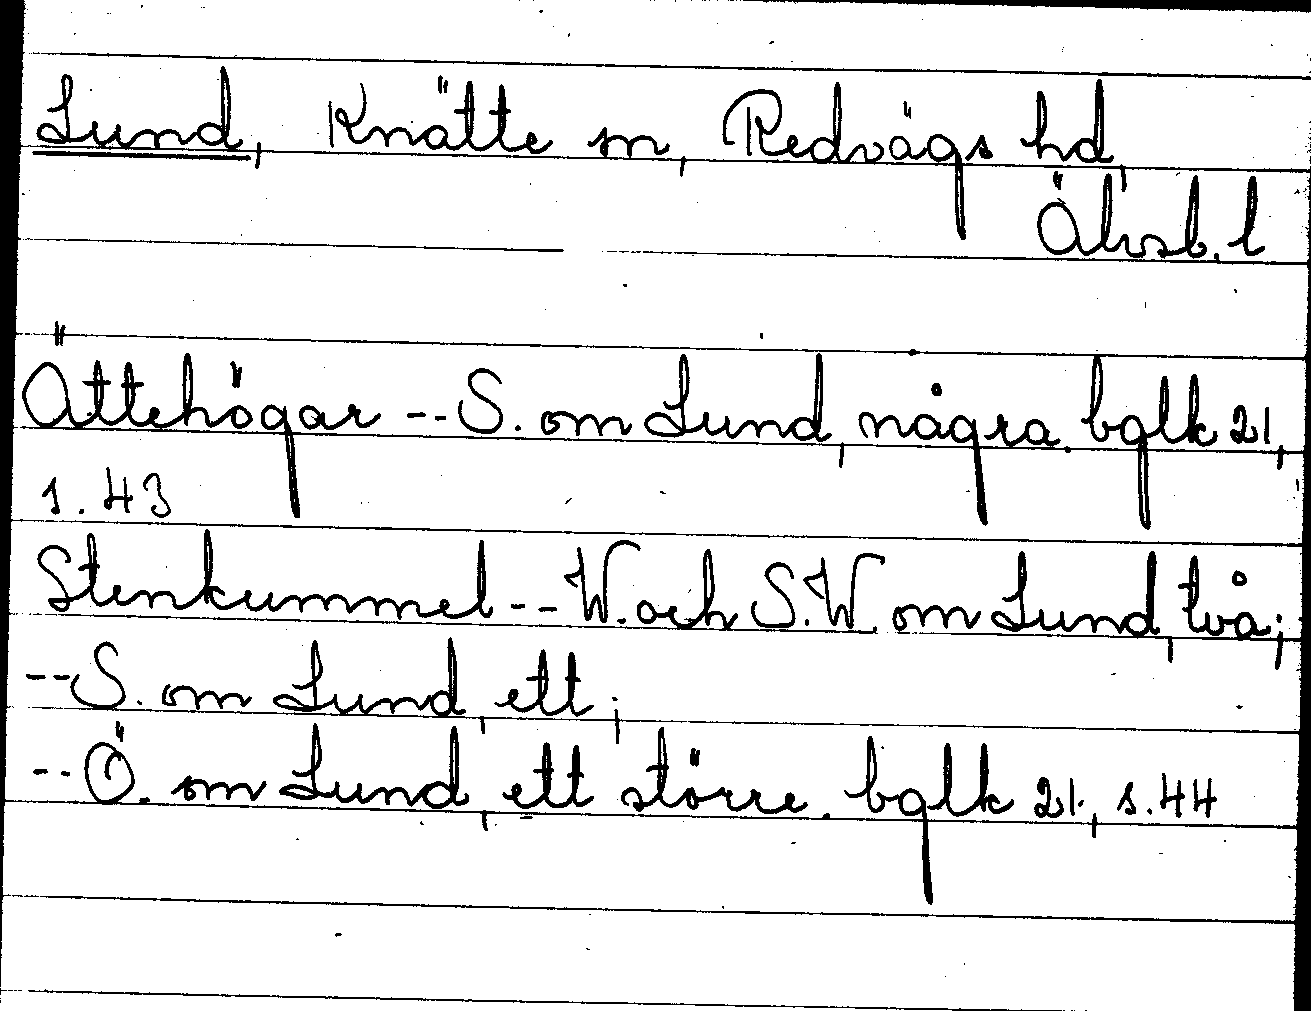 Lund, Knätte sn, Redvägs hd,
Älvsb. l
Ättehögar -- S. om Lund, några. bglk 21,
s. 43
Stenkummel -- W. och S.W. om Lund, två;
-- S. om Lund, ett;
-- Ö. om Lund, ett större. bglk 21, s. 44